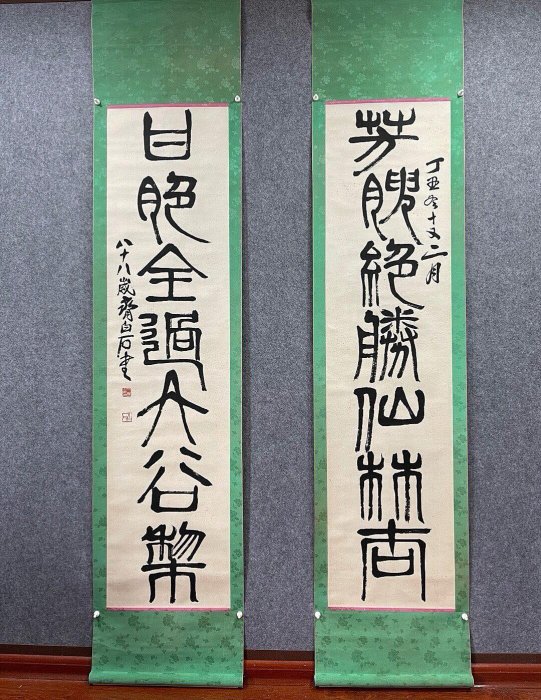 芳腴絕勝仙林杏
丁丑冬十又二月
甘脃全過大谷棃
八十八歲齊白石書